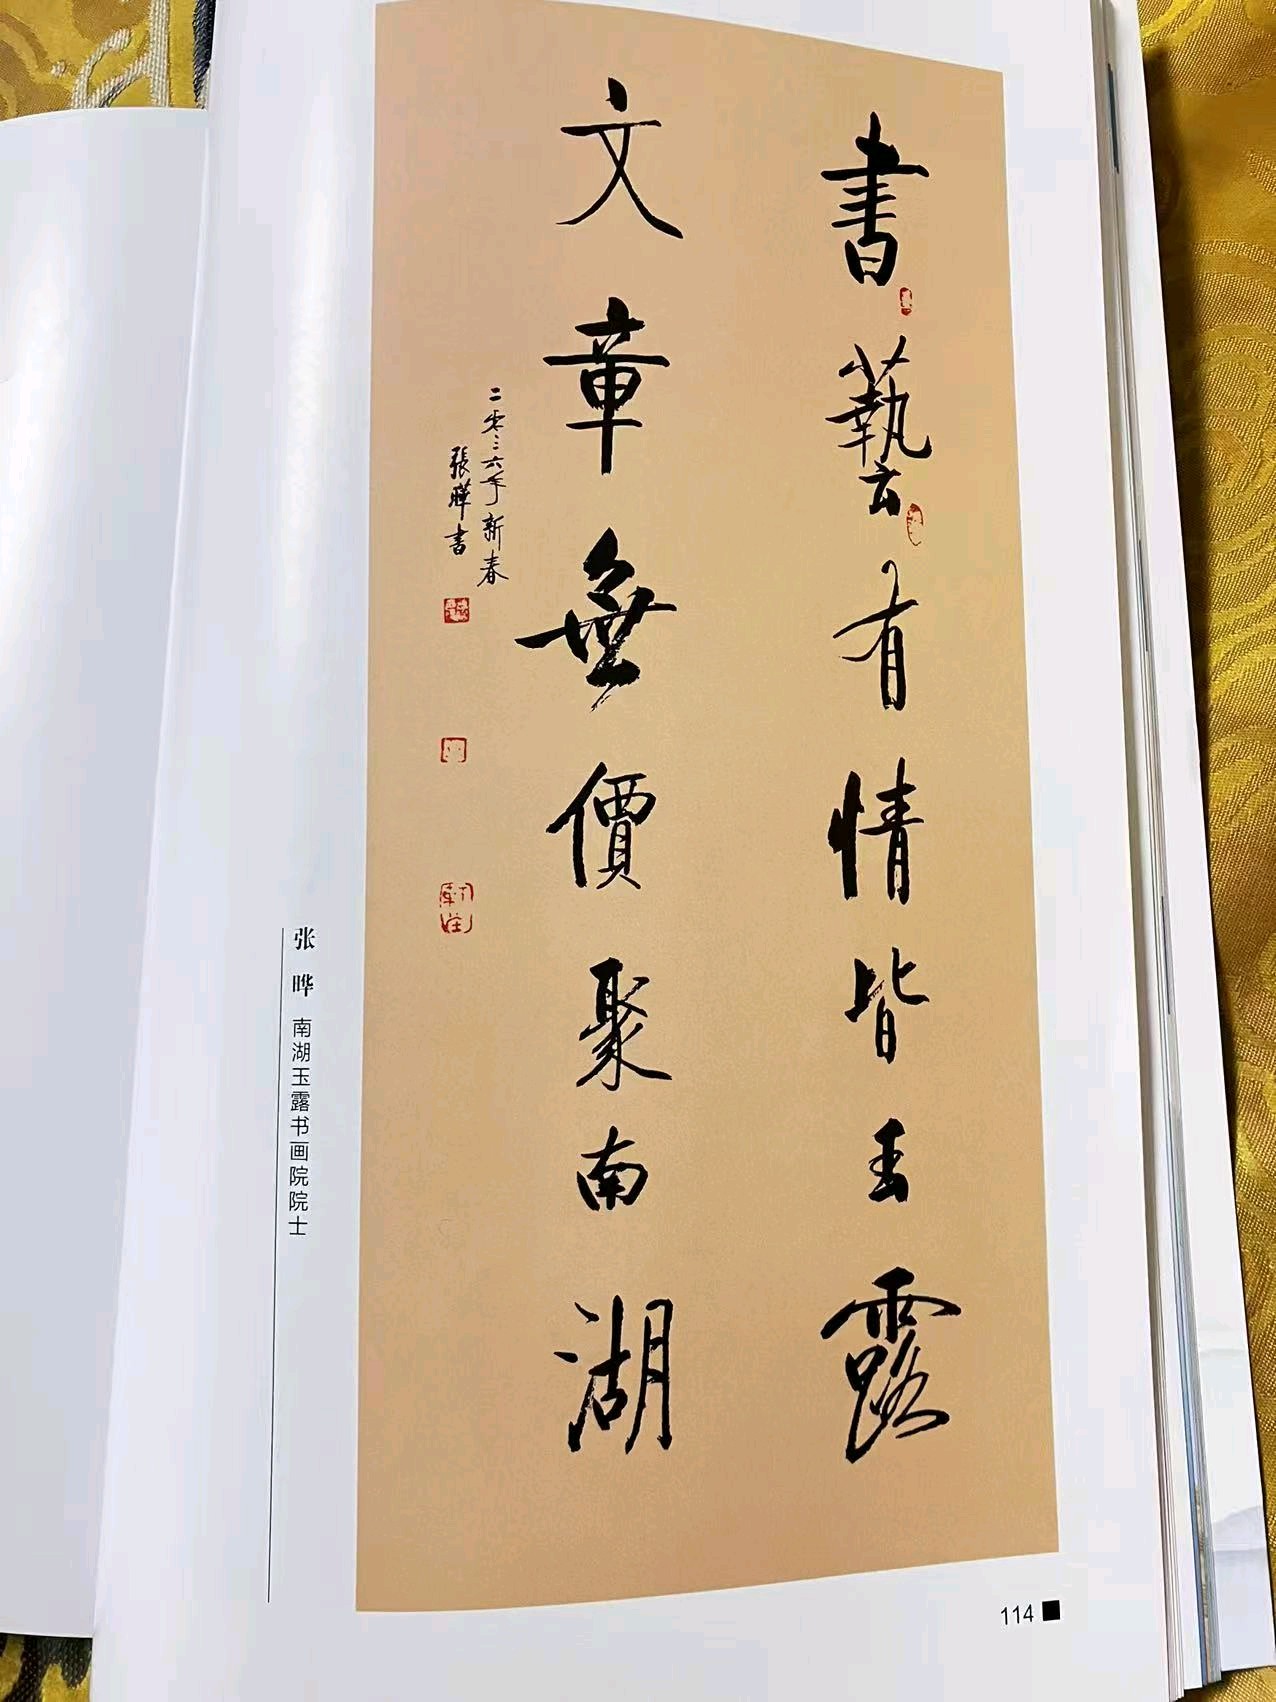 書藝有情皆玉露
文章無價聚南湖
二零二六年新春
張曄書
张晔 南湖玉露书画院院士
114